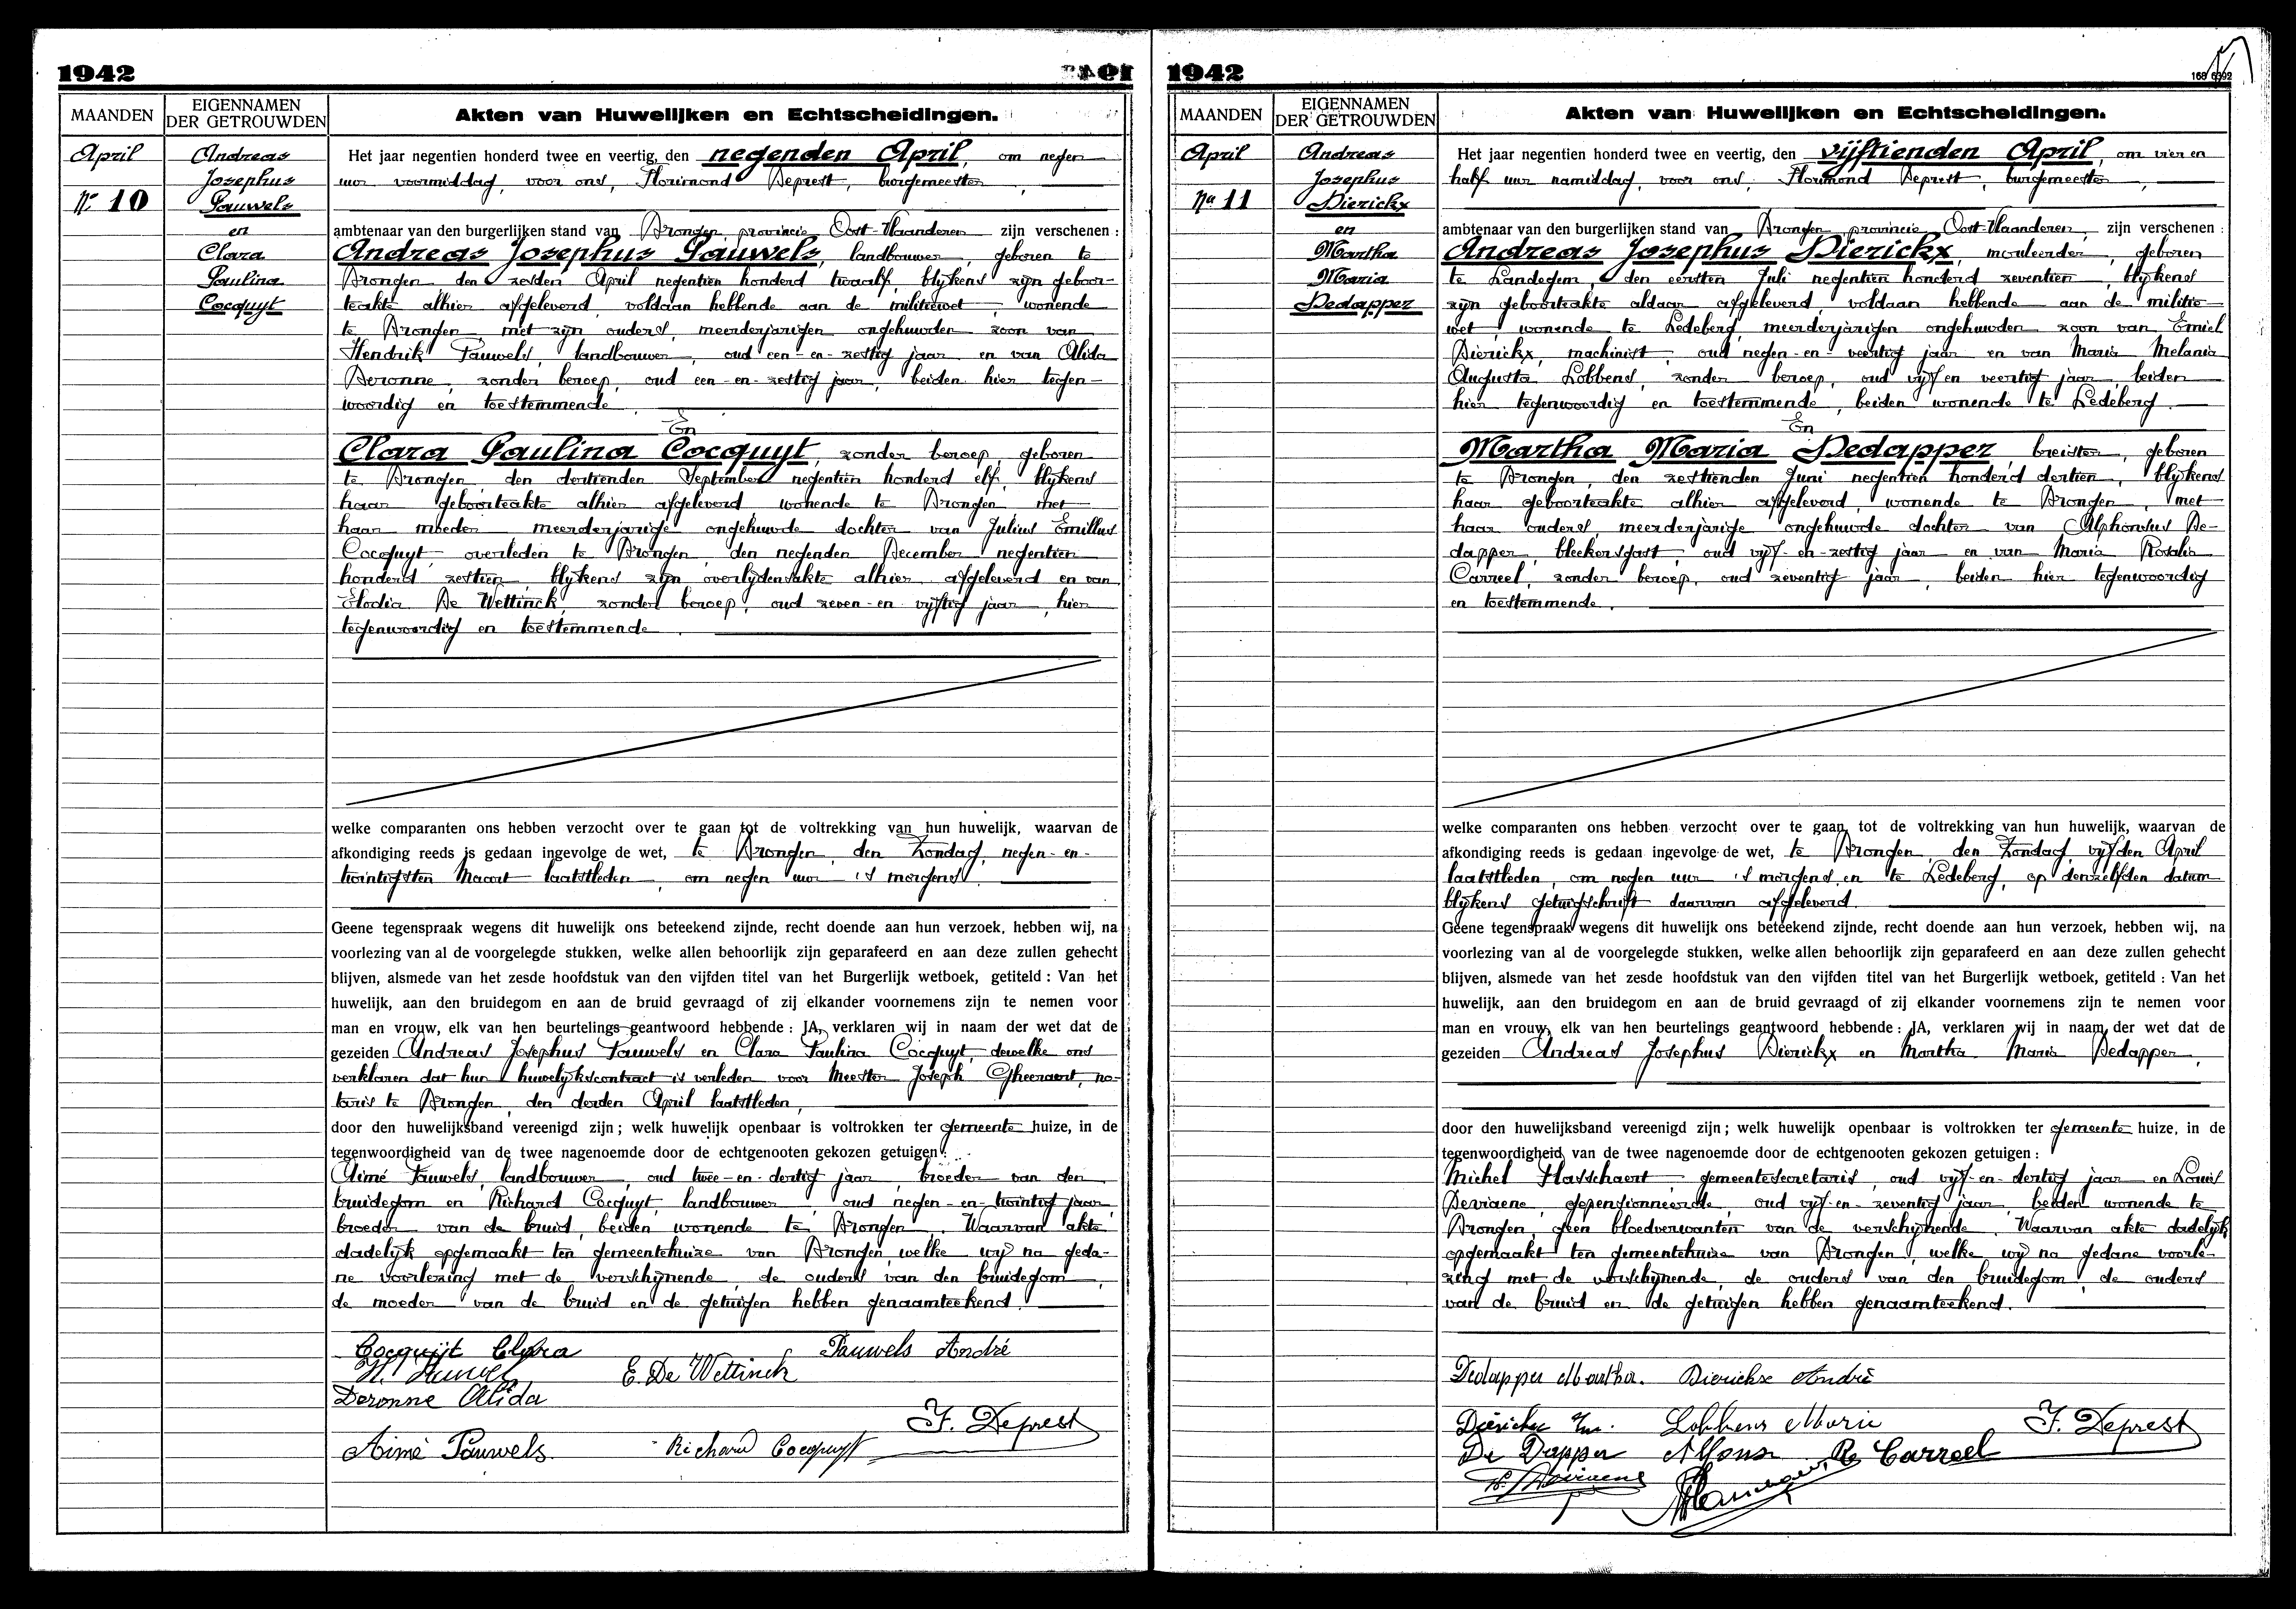 1942
MAANDEN
EIGENNAMEN
DER GETROUWDEN
Akten van Huwelijken en Echtscheidingen.
April
Nr 10
Andreas
Josephus
Pauwels
en
Clara
Paulina
Cocquyt
Het jaar negentien honderd twee en veertig, den negenden April, om negen
uur voormiddag, voor ons, Florimond Deprest, burgemeester,
ambtenaar van den burgerlijken stand van Drongen provincie Oost-Vlaanderen zijn verschenen :
Andreas Josephus Pauwels, landbouwer, geboren te
Drongen, den zesden April negentien honderd twaalf, blijkens zijn geboor-
teakte alhier afgeleverd, voldaan hebbende aan de militiewet, wonende
te Drongen met zijn ouders, meerderjarigen ongehuwden zoon van
Hendrik Pauwels, landbouwer, oud een-en-zestig jaar en van Alida
Deronne, zonder beroep, oud een-en-zestig jaar, beiden hier tegen-
woordig en toestemmende.
En
Clara Paulina Cocquyt, zonder beroep, geboren
te Drongen, den dertienden September negentien honderd elf, blijkens
haar geboorteakte alhier afgeleverd, wonende te Drongen met
haar moeder meerderjarige ongehuwde dochter van Julius Emillus
Cocquyt, overleden te Drongen, den negenden December negentien
honderd zestien, blijkens zijn overlijdensakte alhier afgeleverd en van
Elodia De Wettinck, zonder beroep, oud zeven-en-vijftig jaar, hier
tegenwoordig en toestemmende.
welke comparanten ons hebben verzocht over te gaan tot de voltrekking van hun huwelijk, waarvan de
afkondiging reeds is gedaan ingevolge de wet, te Drongen, den Zondag, negen-en-
twintigsten Maart laatstleden, om negen uur 's morgens.
Geene tegenspraak wegens dit huwelijk ons beteekend zijnde, recht doende aan hun verzoek, hebben wij, na
voorlezing van al de voorgelegde stukken, welke allen behoorlijk zijn geparafeerd en aan deze zullen gehecht
blijven, alsmede van het zesde hoofdstuk van den vijfden titel van het Burgerlijk wetboek, getiteld : Van het
huwelijk, aan den bruidegom en aan de bruid gevraagd of zij elkander voornemens zijn te nemen voor
man en vrouw, elk van hen beurtelings geantwoord hebbende : JA, verklaren wij in naam der wet dat de
gezeiden Andreas Josephus Pauwels en Clara Paulina Cocquyt, dewelke ons
verklaren dat hun huwelijkscontract is verleden voor Meester Joseph Gheeraert, no-
taris te Drongen, den derden April laatstleden,
door den huwelijksband vereenigd zijn ; welk huwelijk openbaar is voltrokken ter gemeente huize, in de
tegenwoordigheid van de twee nagenoemde door de echtgenooten gekozen getuigen :
Aimé Pauwels, landbouwer, oud twee-en-dertig jaar, broeder van den
bruidegom en Richard Cocquyt, landbouwer, oud negen-en-twintig jaar,
broeder van de bruid, beiden wonende te Drongen. Waarvan akte
dadelijk opgemaakt ten gemeentehuize van Drongen, welke wij na geda-
ne voorlezing met de verschijnende, de ouders van den bruidegom,
de moeder van de bruid en de getuigen hebben genaamteekend.
Cocquijt Clara Pauwels André
E. De Wettinck
Deronne Alida
F. Deprest
Aimé Pauwels. Richard Cocquyt
1942
MAANDEN
EIGENNAMEN
DER GETROUWDEN
Akten van Huwelijken en Echtscheidingen.
April
No 11
Andreas
Josephus
Dierickx
en
Martha
Maria
Dedapper
Het jaar negentien honderd twee en veertig, den vijftienden April, om vier en
half uur namiddag, voor ons, Florimond Deprest, burgemeester,
ambtenaar van den burgerlijken stand van Drongen provincie Oost-Vlaanderen, zijn verschenen :
Andreas Josephus Dierickx, mouleerder, geboren
te Landegem, den eersten Juli negentien honderd zeventien, blijkens
zijn geboorteakte aldaar afgeleverd, voldaan hebbende aan de militie-
wet, wonende te Ledeberg, meerderjarigen ongehuwden zoon van Emiel
Dierickx, machinist, oud negen-en-veertig jaar en van Maria Melania
Augusta Lobbens, zonder beroep, oud vijf en veertig jaar, beiden
hier tegenwoordig en toestemmende, beiden wonende te Ledeberg.
En
Martha Maria Dedapper breister, geboren
te Drongen, den zestienden Juni negentien honderd dertien, blijkens
haar geboorteakte alhier afgeleverd, wonende te Drongen, met
haar ouders, meerderjarige ongehuwde dochter van Alphonsus De-
dapper, bleekersgast, oud vijf-en-zestig jaar en van Maria Rosalia
Carreel, zonder beroep, oud zeventig jaar, beiden hier tegenwoordig
en toestemmende.
welke comparanten ons hebben verzocht over te gaan tot de voltrekking van hun huwelijk, waarvan de
afkondiging reeds is gedaan ingevolge de wet, te Drongen, den Zondag, vijfden April
laatstleden, om negen uur 's morgens en te Ledeberg, op denzelfden datum
blijkens getuigschrift daarvan afgeleverd.
Geene tegenspraak wegens dit huwelijk ons beteekend zijnde, recht doende aan hun verzoek, hebben wij, na
voorlezing van al de voorgelegde stukken, welke allen behoorlijk zijn geparafeerd en aan deze zullen gehecht
blijven, alsmede van het zesde hoofdstuk van den vijfden titel van het Burgerlijk wetboek, getiteld : Van het
huwelijk, aan den bruidegom en aan de bruid gevraagd of zij elkander voornemens zijn te nemen voor
man en vrouw, elk van hen beurtelings geantwoord hebbende : JA, verklaren wij in naam der wet dat de
gezeiden Andreas Josephus Dierickx en Martha Maria Dedapper,
door den huwelijksband vereenigd zijn ; welk huwelijk openbaar is voltrokken ter gemeente huize, in de
tegenwoordigheid van de twee nagenoemde door de echtgenooten gekozen getuigen :
Michel Hasschaert gemeentesecretaris, oud vijf-en-dertig jaar en Louis
Devriaene, gepensionneerde, oud vijf-en-zeventig jaar, beiden wonende te
Drongen, geen bloedverwanten van de verschijnende. Waarvan akte dadelijk
opgemaakt ten gemeentehuize van Drongen, welke wij na gedane voorle-
zing met de verschijnende, de ouders van den bruidegom, de ouders
van de bruid en de getuigen hebben genaamteekend.
Dedapper Martha. Dierickx André
Dierickx Em. Lobbens Marie F. Deprest
De Dapper Alfons R Carreel